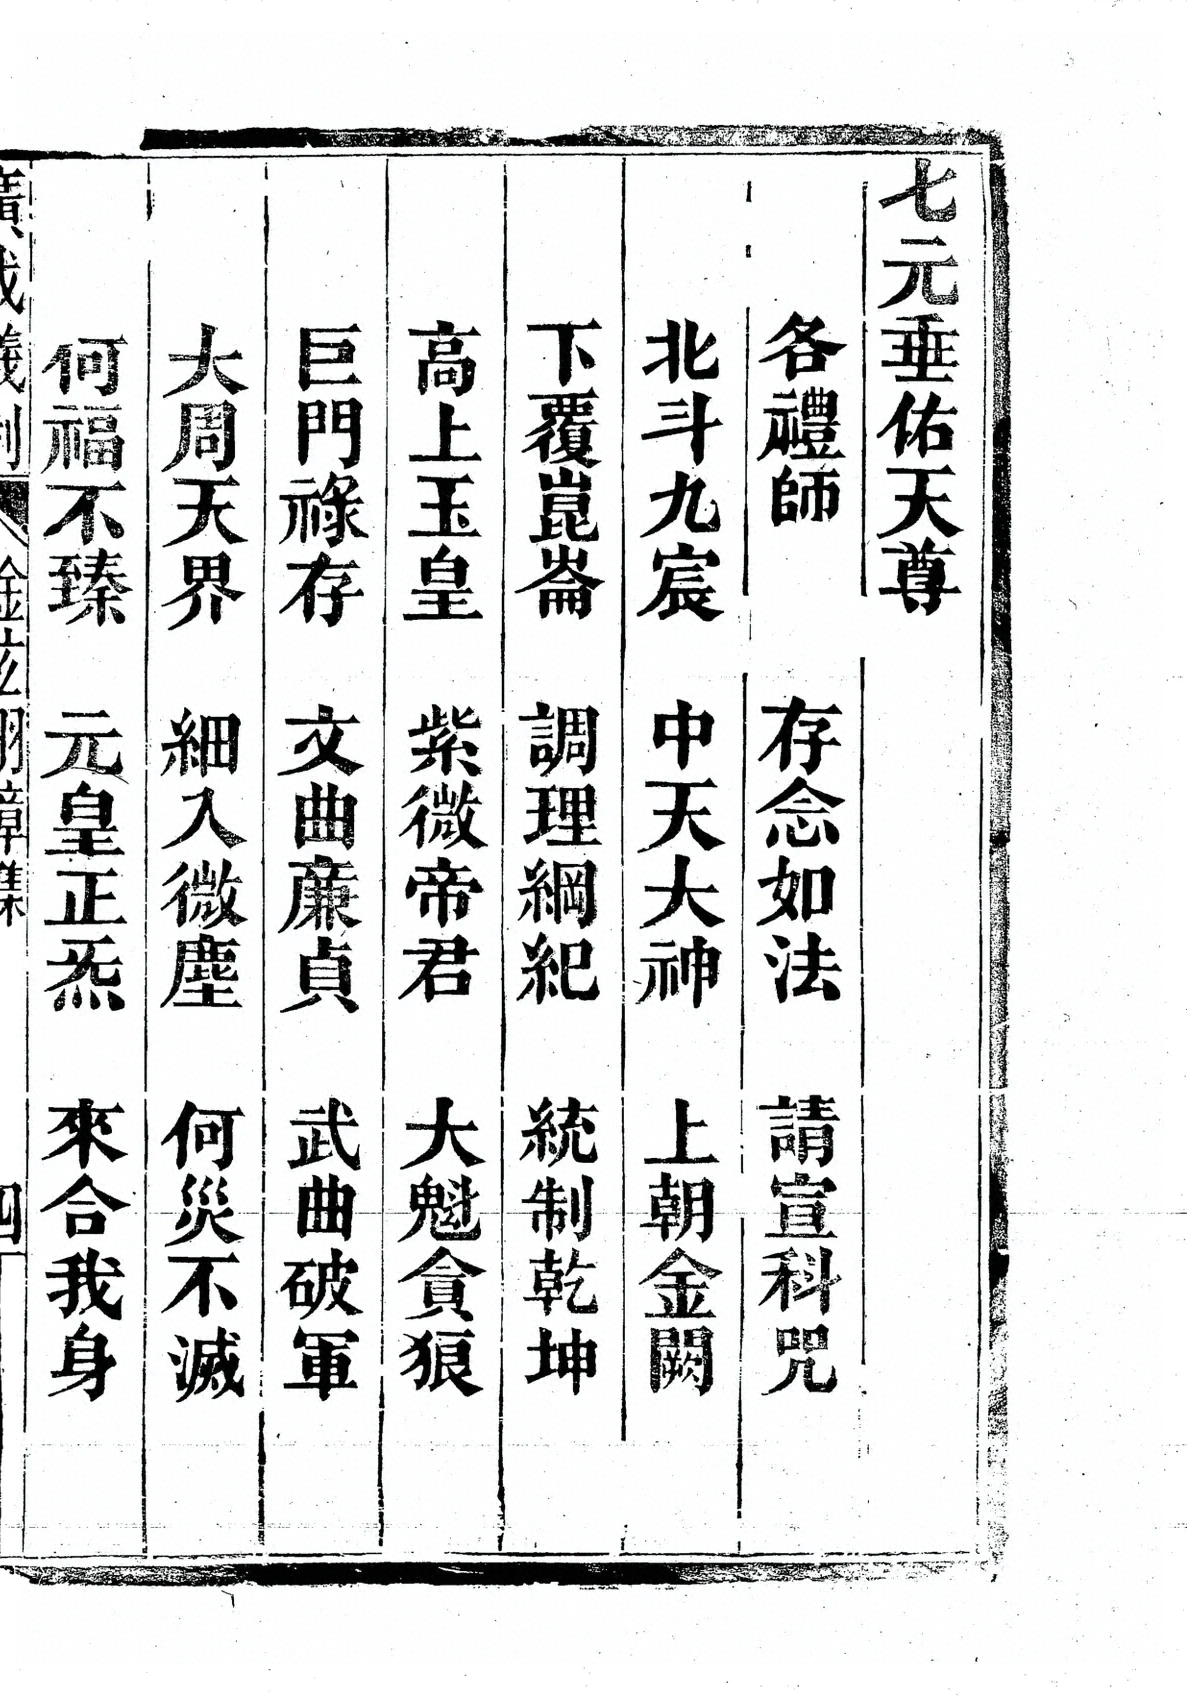 七元垂佑天尊
各禮師　存念如法　請宣科咒
北斗九宸　中天大神　上朝金闕
下覆崑崙　調理綱紀　統制乾坤
高上玉皇　紫微帝君　大魁貪狼
巨門祿存　文曲廉貞　武曲破軍
大周天界　細入微塵　何災不滅
何福不臻　元皇正炁　來合我身
廣成儀制　金玄羽章集　四